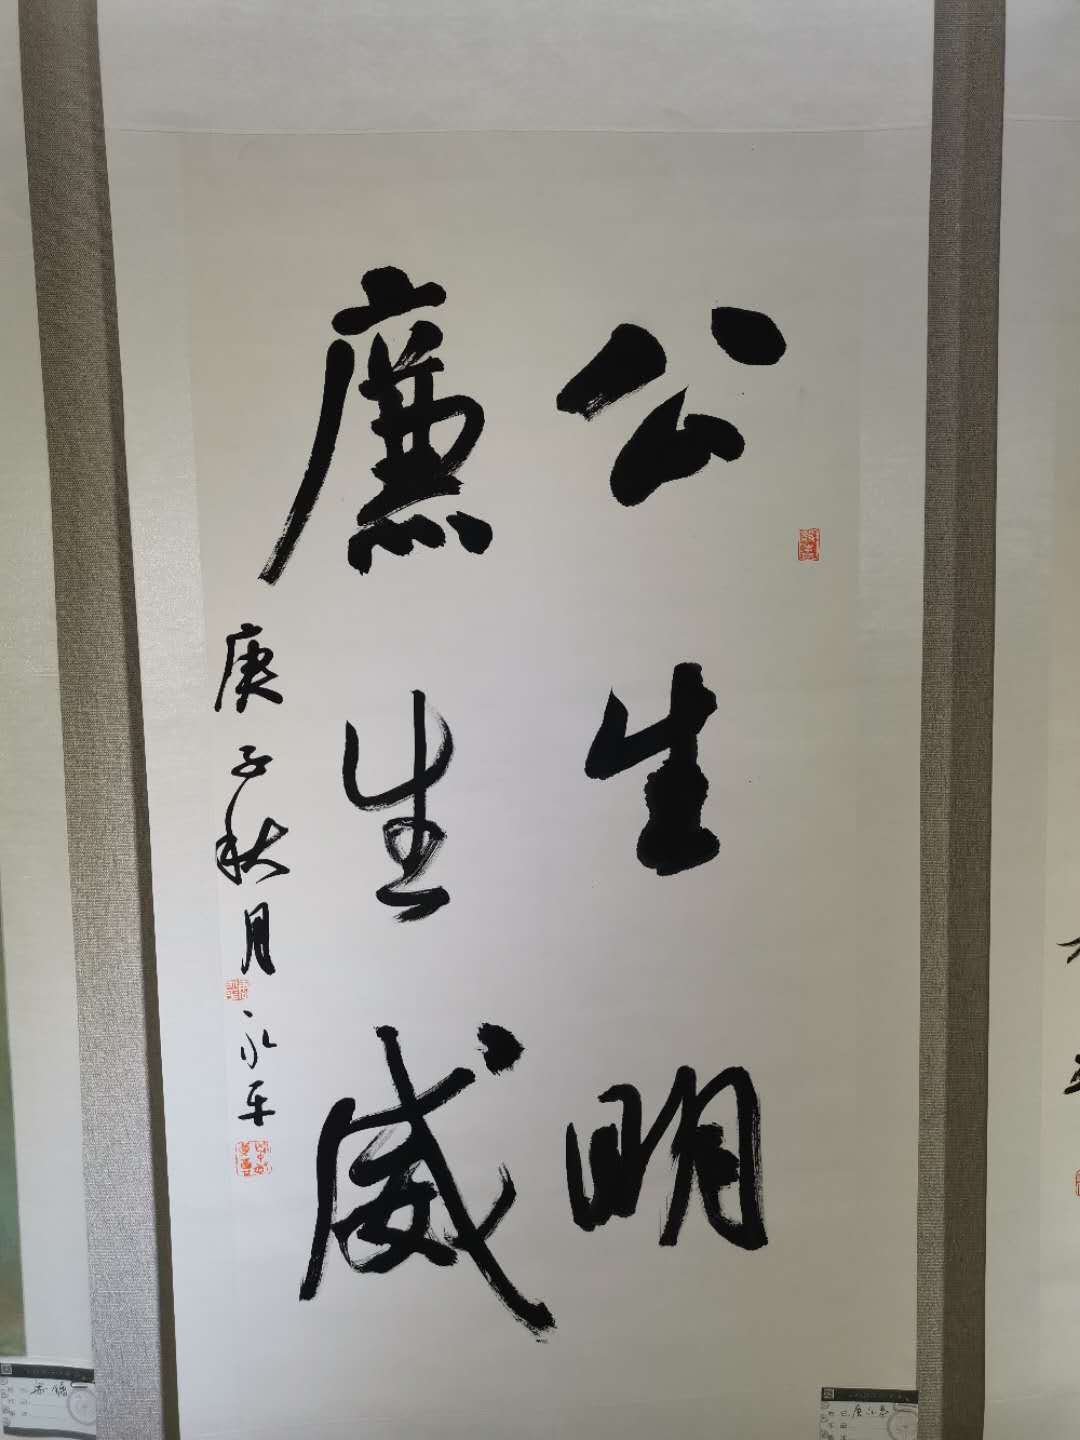 公生明
廉生威
庚子秋月
永平